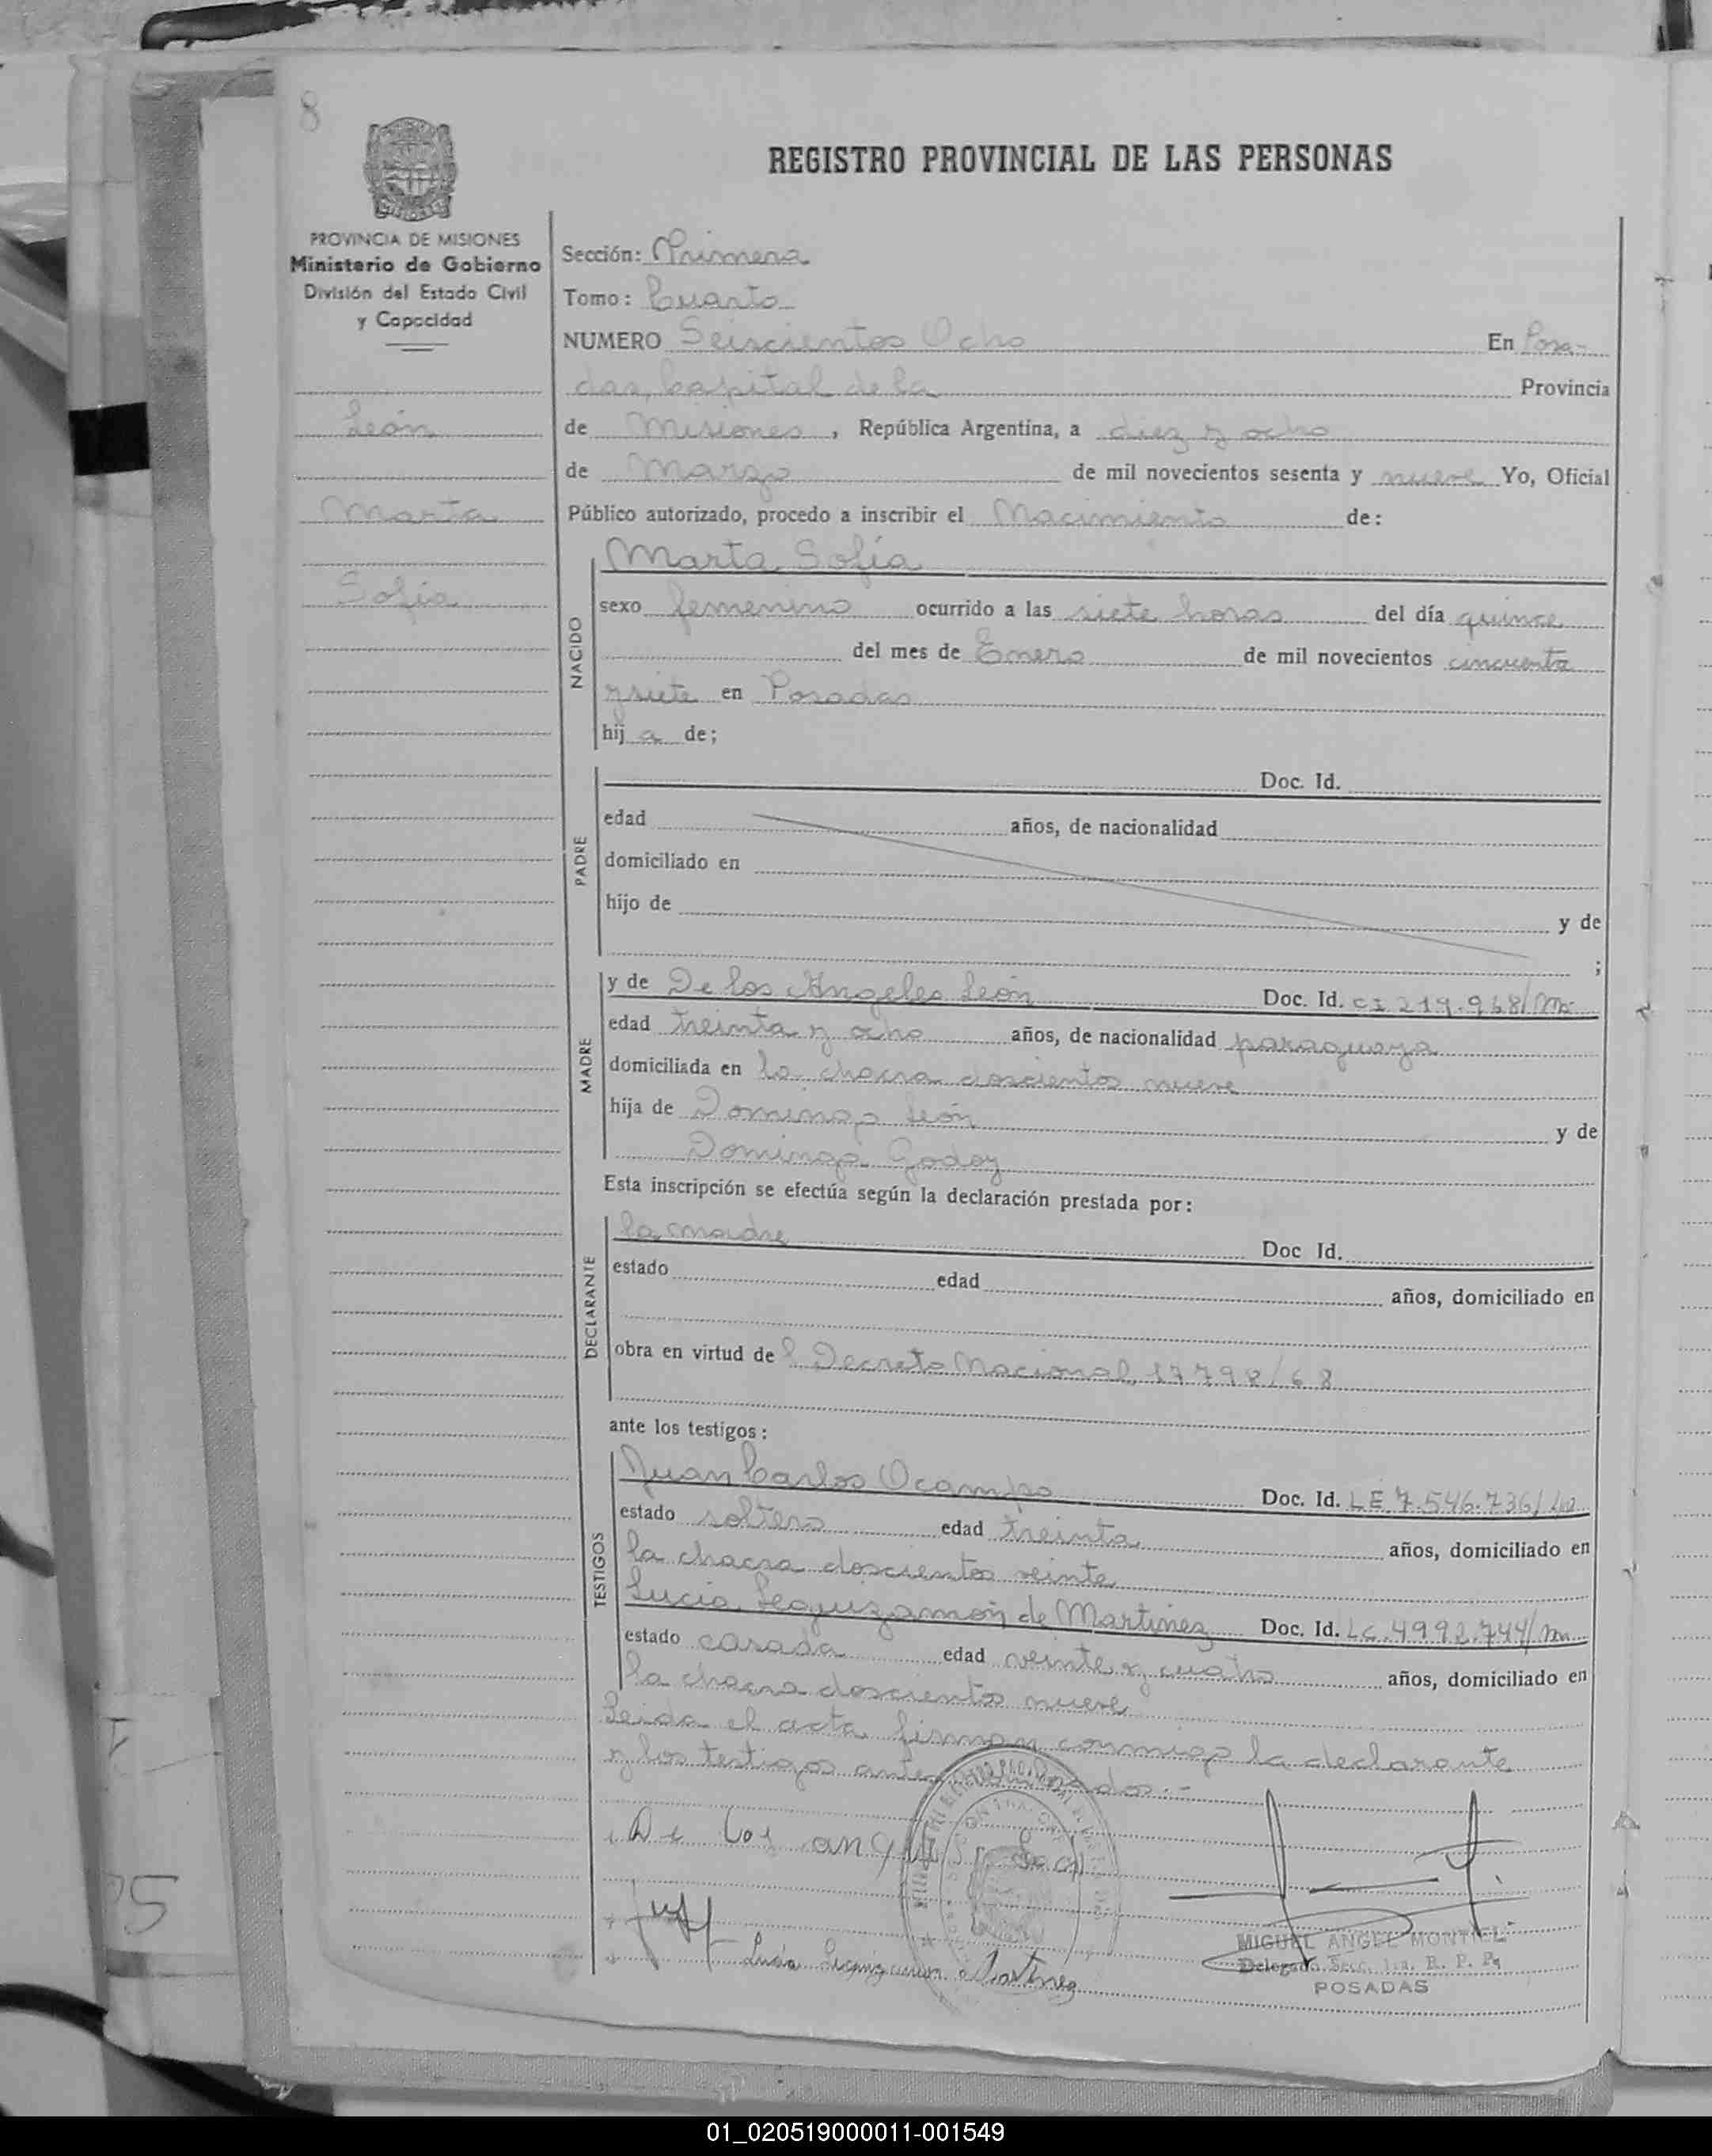 8
REGISTRO PROVINCIAL DE LAS PERSONAS
PROVINCIA DE MISIONES
Ministerio de Gobierno
División del Estado Civil
y Capacidad
León
Marta
Sofía
Sección: Primera
Tomo: Cuarto
NUMERO Seiscientos Ocho En Posa-
das, Capital de la Provincia
de Misiones, República Argentina, a diez y ocho
de Marzo de mil novecientos sesenta y nueve Yo, Oficial
Público autorizado, procedo a inscribir el Nacimiento de:
NACIDO
Marta Sofía
sexo femenino ocurrido a las siete horas del día quince
del mes de Enero de mil novecientos cincuenta
y siete en Posadas
hij a de;
PADRE
Doc. Id.
edad años, de nacionalidad
domiciliado en
hijo de y de
;
MADRE
y de De los Angeles León Doc. Id. CI 219.968/M
edad treinta y ocho años, de nacionalidad paraguaya
domiciliada en la chacra doscientos nueve
hija de Domingo León y de
Dominga Godoy
Esta inscripción se efectúa según la declaración prestada por:
DECLARANTE
la madre Doc Id.
estado edad años, domiciliado en
obra en virtud de l Decreto Nacional 17798/68
ante los testigos:
TESTIGOS
Juan Carlos Ocampo Doc. Id. LE 7.546.736/
estado soltero edad treinta años, domiciliado en
la chacra doscientos veinte
Lucía Leguizamón de Martinez Doc. Id. LC.4992.744/m
estado casada edad veinte y cuatro años, domiciliado en
la chacra doscientos nueve
Leida el acta firman conmigo la declarante
y los testigos antes nombrados.-
De los angeles León
Lucia Leguizamon de Martinez
MIGUEL ANGEL MONTIEL
Delegado Secc. 1ra. R. P. P.
POSADAS
01_020519000011-001549